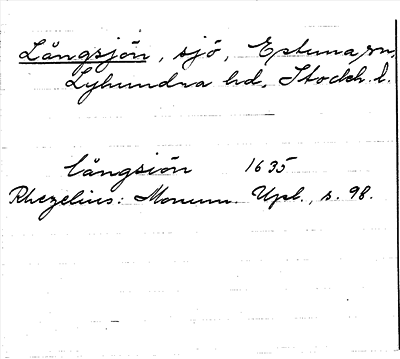 Långsjön, sjö, Estuna sn.
Lyhundra hd, Stockh. l.
långsiön 1635
Rhezelius: Monum. Upl., s. 98.